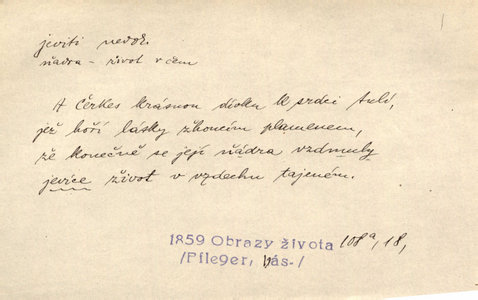 jeviti nedok.
ňadra – život v čem
A Čerkes krásnou dívku k srdci tulí,
jež hoří lásky žhoucím plamenem,
že konečně se její ňádra vzdmuly
jevíce život v vzdechu tajeném.
1859 Obrazy života 108a, 18,
/Pfleger, bás-/